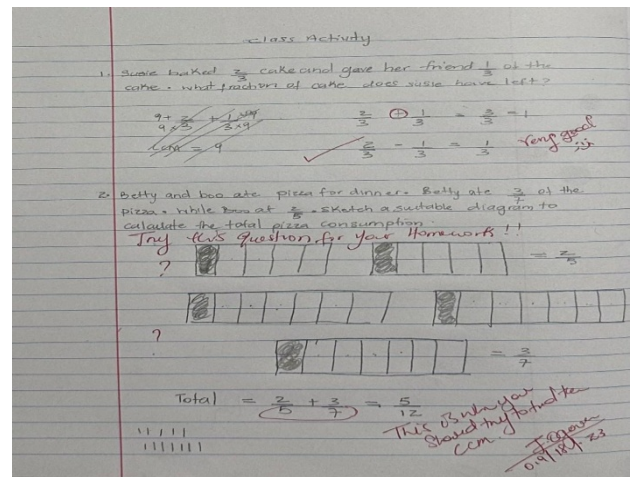 Class Activity
1. Susie baked 2/3 cake and gave her friend 1/3 of the
cake. what fraction of cake does susie have left?
2/3 + 1/3 = 3/3 - 1
LCM = 9
2/3 - 1/3 = 1/3 Very good
2. Betty and boo ate pizza for dinner. Betty ate 3/7 of the
pizza. while Boo at 2/5. sketch a suitable diagram to
calculate the total pizza consumption.
Try this question for your Homework!!
? = 2/5
?
= 3/7
Total = 2/5 + 3/7 = 5/12
This is when you
should try to find the
LCM.